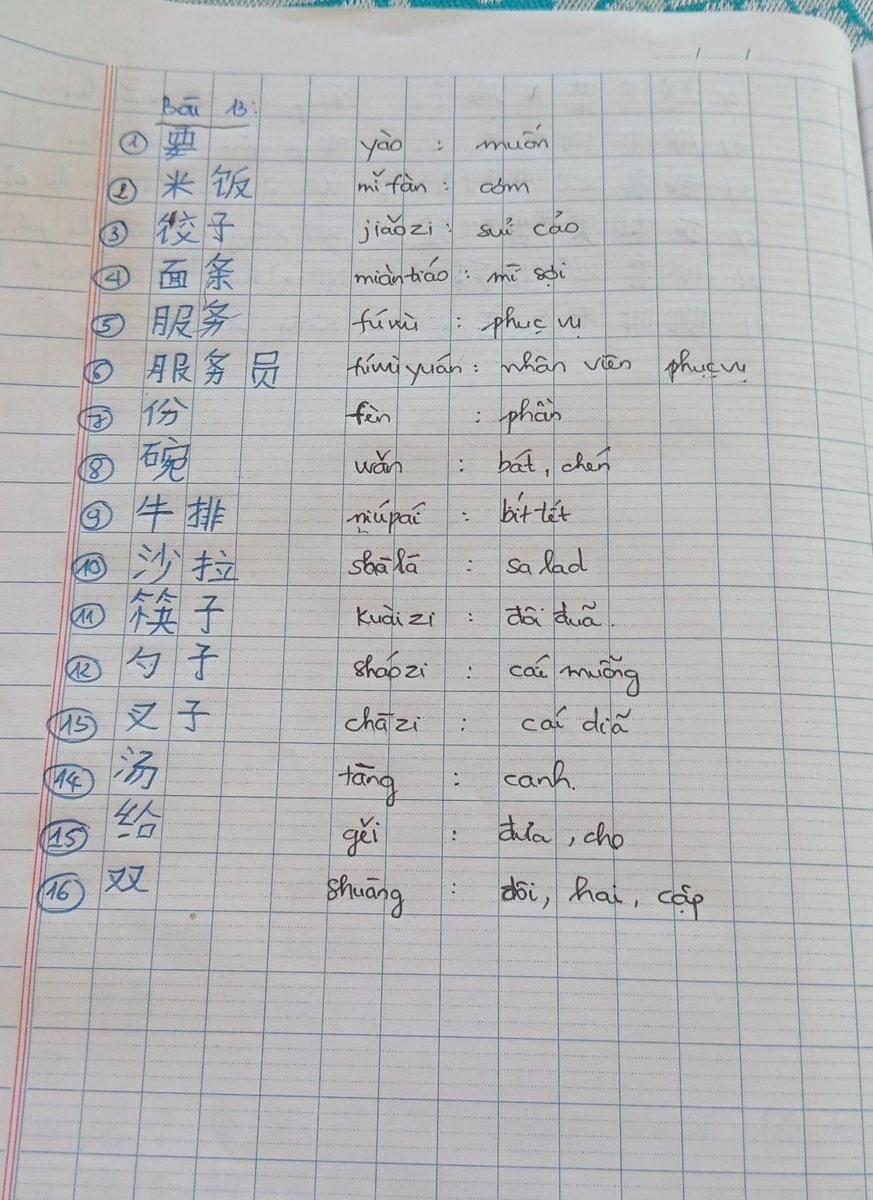 Bài 13:
① 要 yào : muốn
② 米饭 mǐ fàn : cơm
③ 饺子 jiǎozi : suỉ cảo
④ 面条 miàntiáo : mī sợi
⑤ 服务 fúwù : phục vụ
⑥ 服务员 fúwùyuán : nhân viên phục vụ
⑦ 份 fèn : phần
⑧ 碗 wǎn : bát, chén
⑨ 牛排 niúpái : bít tết
⑩ 沙拉 shālā : sa lad
⑪ 筷子 kuàizi : đôi đuã.
⑫ 勺子 sháozi : cái muỗng
⑬ 叉子 chāzi : cái diã
⑭ 汤 tāng : canh.
⑮ 给 gěi : đưa, cho
⑯ 双 shuāng : đôi, hai, cặp